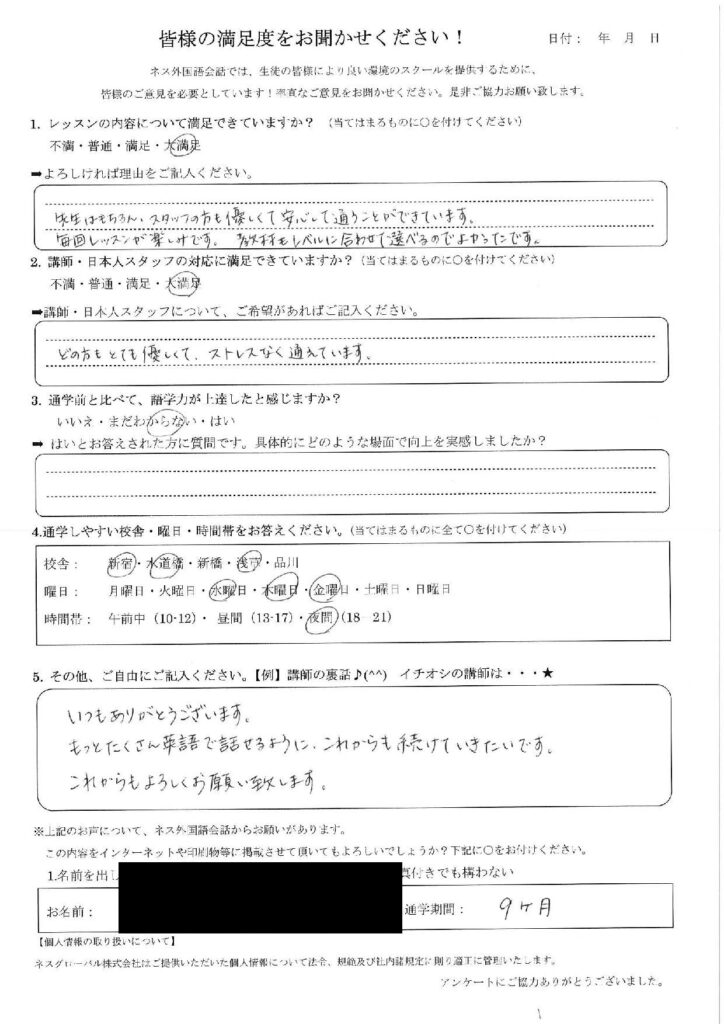 皆様の満足度をお聞かせください！
日付： 年 月 日
ネス外国語会話では、生徒の皆様により良い環境のスクールを提供するために、
皆様のご意見を必要としています！率直なご意見をお聞かせください。是非ご協力お願い致します。
1. レッスンの内容について満足できていますか？（当てはまるものに○を付けてください）
不満・普通・満足・大満足
➡よろしければ理由をご記入ください。
先生はもちろん、スタッフの方も優しくて安心して通うことができています。
毎回レッスンが楽しみです。 教材もレベルに合わせて選べるのでよかったです。
2. 講師・日本人スタッフの対応に満足できていますか？（当てはまるものに○を付けてください）
不満・普通・満足・大満足
➡講師・日本人スタッフについて、ご希望があればご記入ください。
どの方もとても優しくて、ストレスなく通えています。
3. 通学前と比べて、語学力が上達したと感じますか？
いいえ・まだわからない・はい
➡ はいとお答えされた方に質問です。具体的にどのような場面で向上を実感しましたか？
4.通学しやすい校舎・曜日・時間帯をお答えください。（当てはまるものに全て○を付けてください）
校舎： 新宿・水道橋・新橋・浅草・品川
曜日： 月曜日・火曜日・水曜日・木曜日・金曜日・土曜日・日曜日
時間帯： 午前中（10-12）・ 昼間（13-17）・夜間（18－21）
5. その他、ご自由にご記入ください。【例】講師の裏話♪(^^) イチオシの講師は・・・★
いつもありがとうございます。
もっとたくさん英語で話せるように、これからも続けていきたいです。
これからもよろしくお願い致します。
※上記のお声について、ネス外国語会話からお願いがあります。
この内容をインターネットや印刷物等に掲載させて頂いてもよろしいでしょうか？下記に○をお付けください。
1.名前を出し 真付きでも構わない
お名前： 通学期間： 9ヶ月
【個人情報の取り扱いについて】
ネスグローバル株式会社はご提供いただいた個人情報について法令、規範及び社内諸規定に則り適正に管理いたします。
アンケートにご協力ありがとうございました。